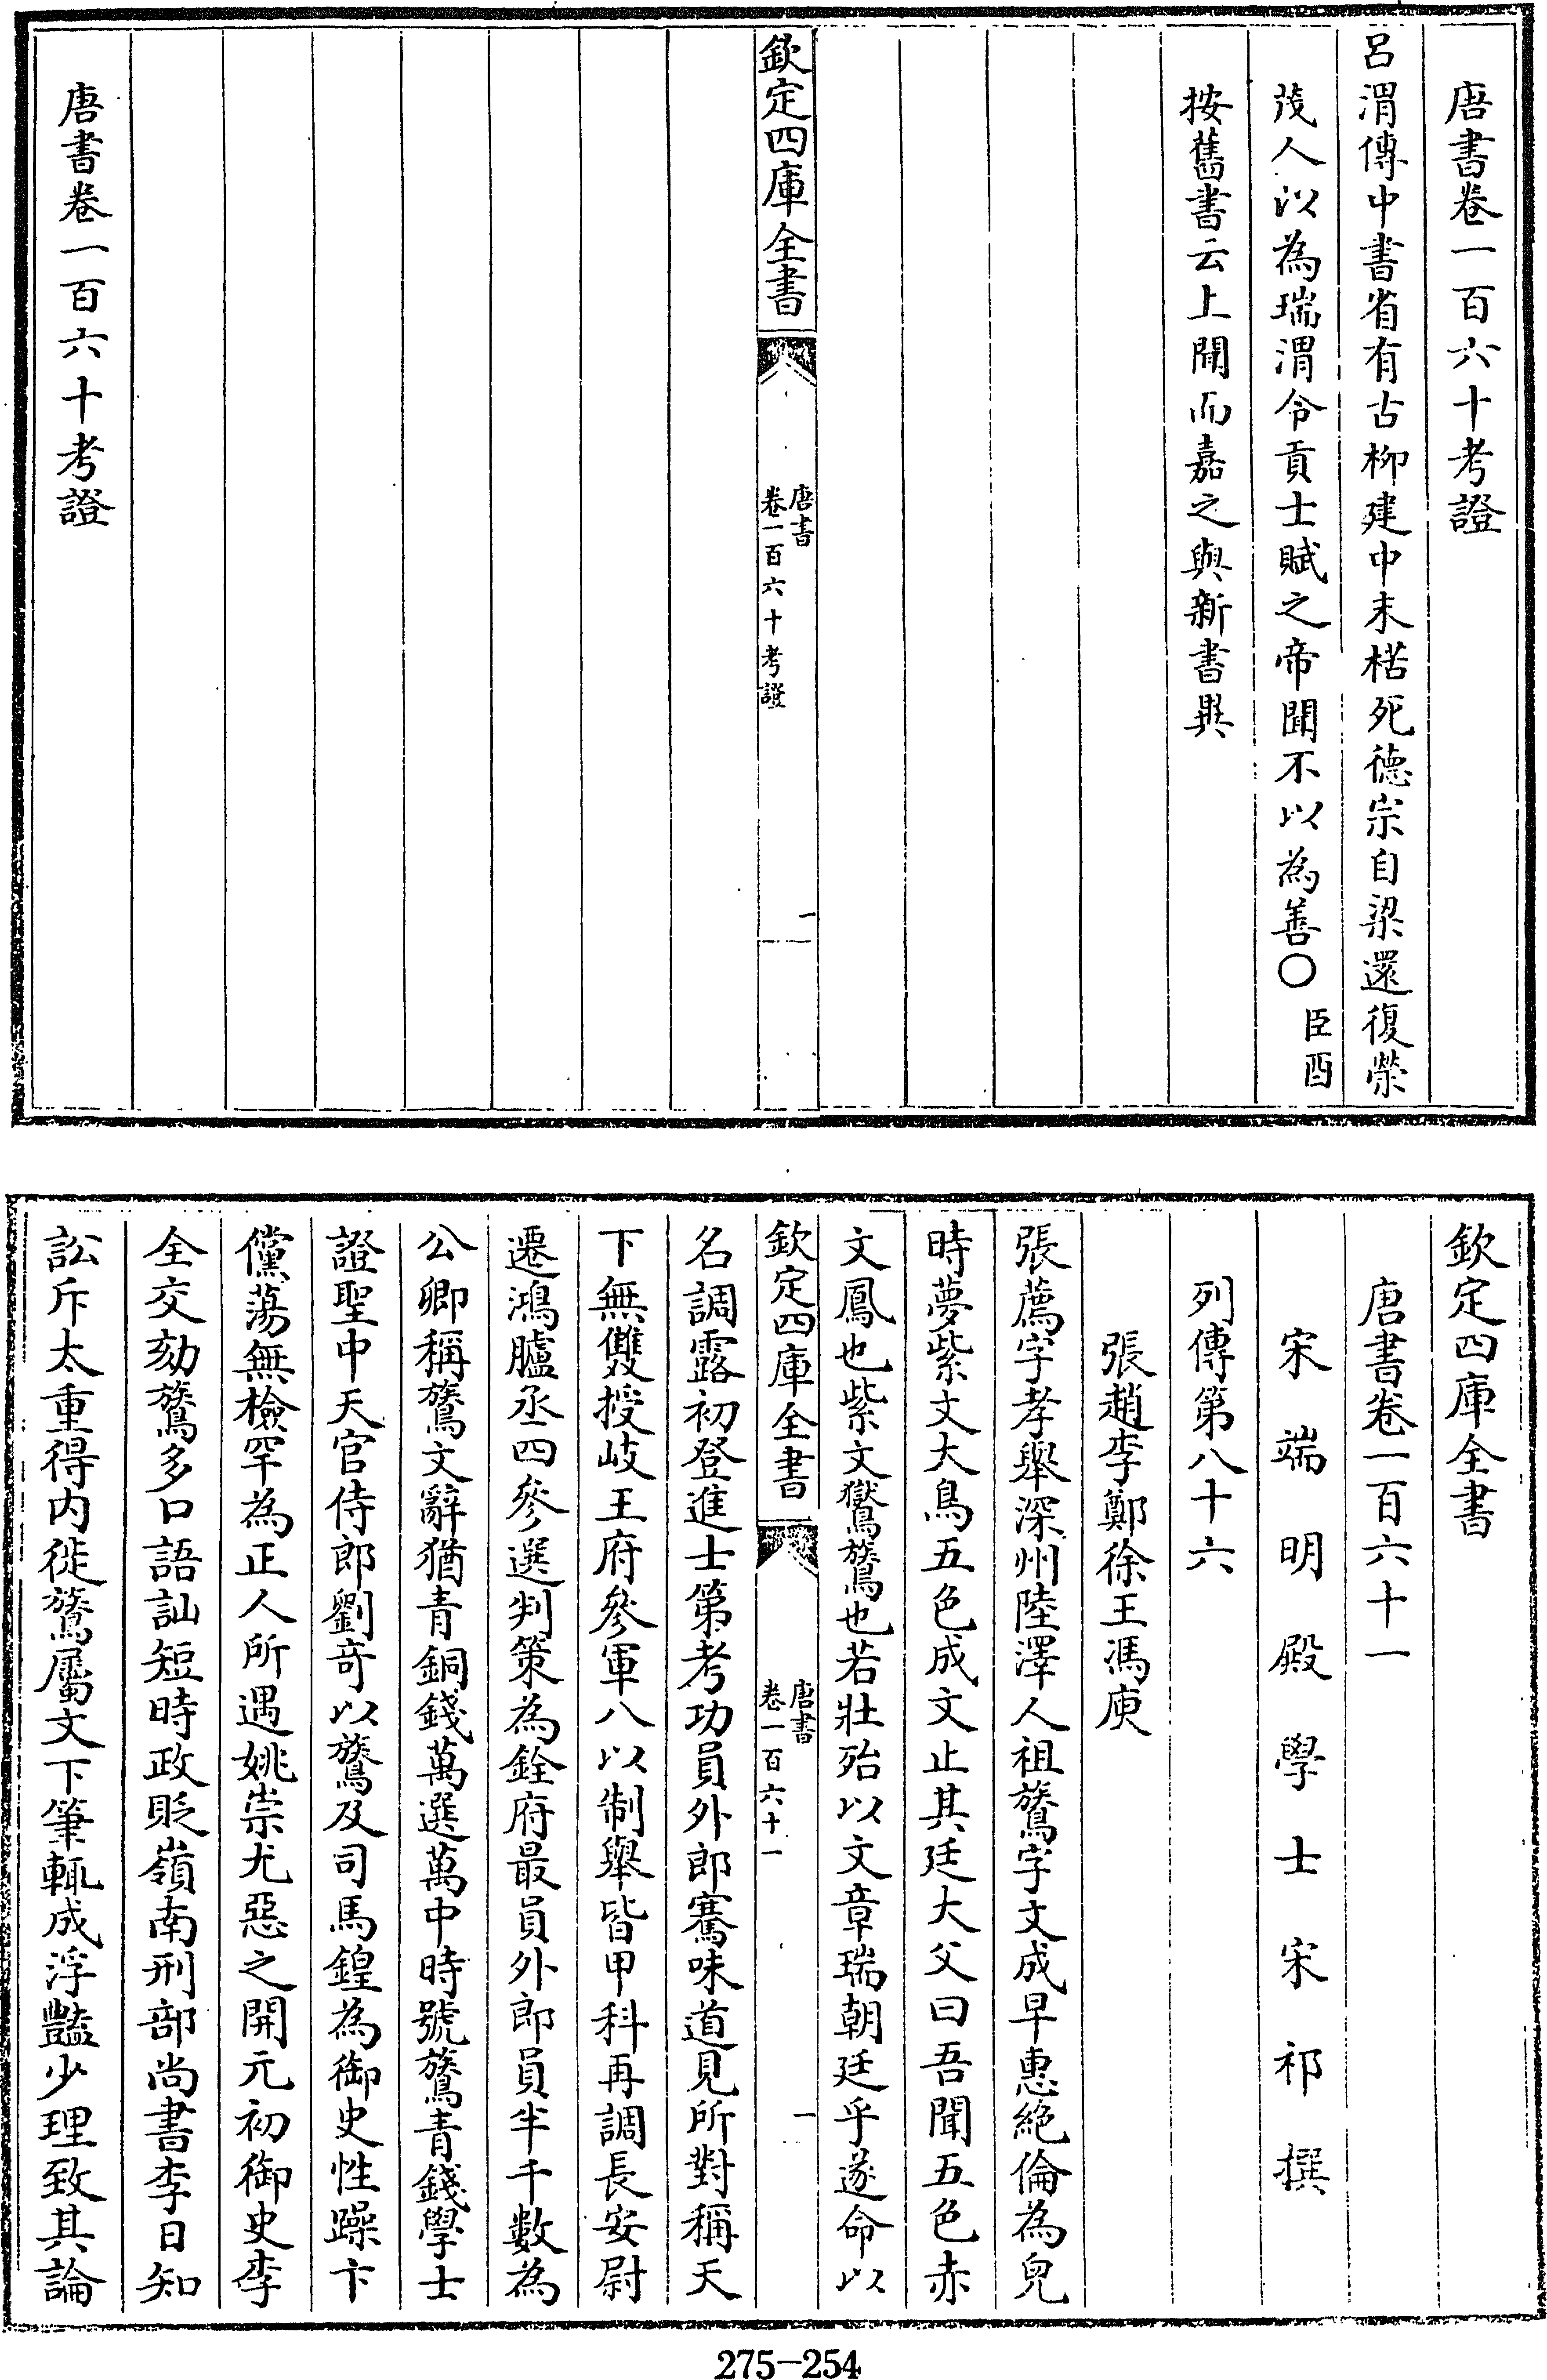 唐書卷一百六十考證
呂渭傳中書省有古柳建中末枯死德宗自梁還復榮
茂人以為瑞渭令貢士賦之帝聞不以為善○臣酉
按舊書云上聞而嘉之與新書異
欽定四庫全書
唐書
卷一百六十考證
一
唐書卷一百六十考證
欽定四庫全書
唐書卷一百六十一
宋端明殿學士宋祁撰
列傳第八十六
張趙李鄭徐王馮庾
張薦字孝舉深州陸澤人祖鷟字文成早惠絶倫為兒
時夢紫文大鳥五色成文止其廷大父曰吾聞五色赤
文鳳也紫文鸑鷟也若壯殆以文章瑞朝廷乎遂命以
欽定四庫全書
唐書
卷一百六十一
一
名調露初登進士第考功員外郎騫味道見所對稱天
下無雙授岐王府參軍八以制舉皆甲科再調長安尉
遷鴻臚丞四參選判策為銓府最員外郎員半千數為
公卿稱鷟文辭猶青銅錢萬選萬中時號鷟青錢學士
證聖中天官侍郎劉奇以鷟及司馬鍠為御史性躁卞
儻蕩無檢罕為正人所遇姚崇尤惡之開元初御史李
全交劾鷟多口語訕短時政貶嶺南刑部尚書李日知
訟斥太重得内徙鷟屬文下筆輒成浮豔少理致其論
275-254